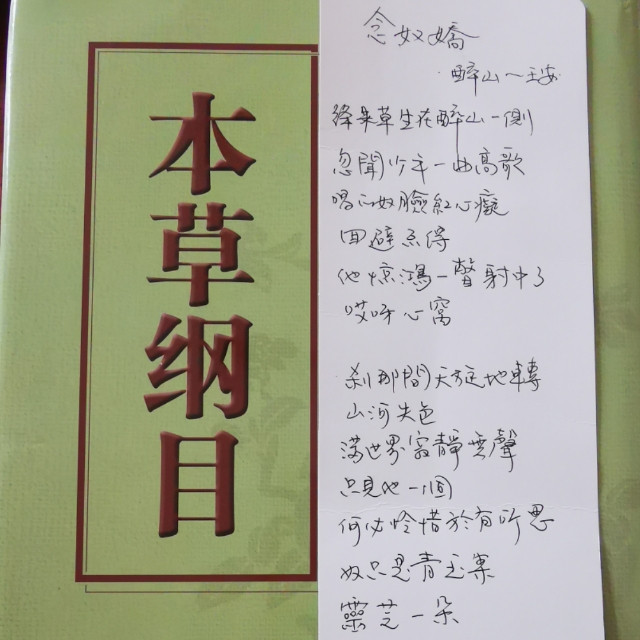 本草纲目
念奴嬌
醉山~玉安
絳朱草生在醉山一側
忽聞少年一曲高歌
唱的奴臉紅心癡
回避不得
他惊鴻一瞥射中了
哎呀心窩
刹那間天旋地轉
山河失色
滿世界寂靜無聲
只見他一個
何必怜惜於有所思
奴只是青玉案
靈芝一朵